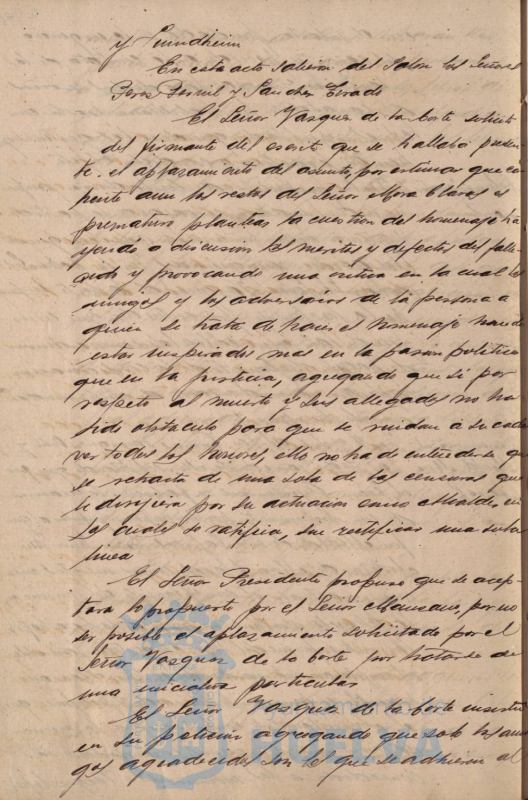 y Sundheim
En este acto salieron del Salon los Señores
Perez Bernil y Sanchez Tirado
El Señor Vasquez de la Corte solicitó
del firmante del escrito que se hallaba presen-
te, el aplazamiento del asunto, por estimar que ca-
liente aun los restos del Señor Mora Claros es
prematuro plantear la cuestion del homenaje tra-
yendo a discusion los meritos y defectos del falle-
cido y provocando una critica en la cual los
amigos y los adversarios de la persona a
quien se trata de hacer el homenaje han de
estar inspirados mas en la pasion politica
que en la justicia, agregando que si por
respeto al muerto y sus allegados no ha
sido obstáculo para que se rindan a su cada-
ver todos los honores, ello no ha de entenderse que
se retracta de una sola de las censuras que
le dirijiera por su actuacion como Alcalde, en
las cuales se ratifica, sin rectificar una sola
linea
El Señor Presidente propuso que se acep-
tara lo propuesto por el Señor Manzano, por no
ser posible el aplazamiento solicitado por el
Señor Vasquez de la Corte por tratarse de
una iniciativa particular
El Señor Vasquez de la Corte insiste
en su peticion agregando que solo los ami-
gos agradecidos son los que se adhieren al
HUELVA